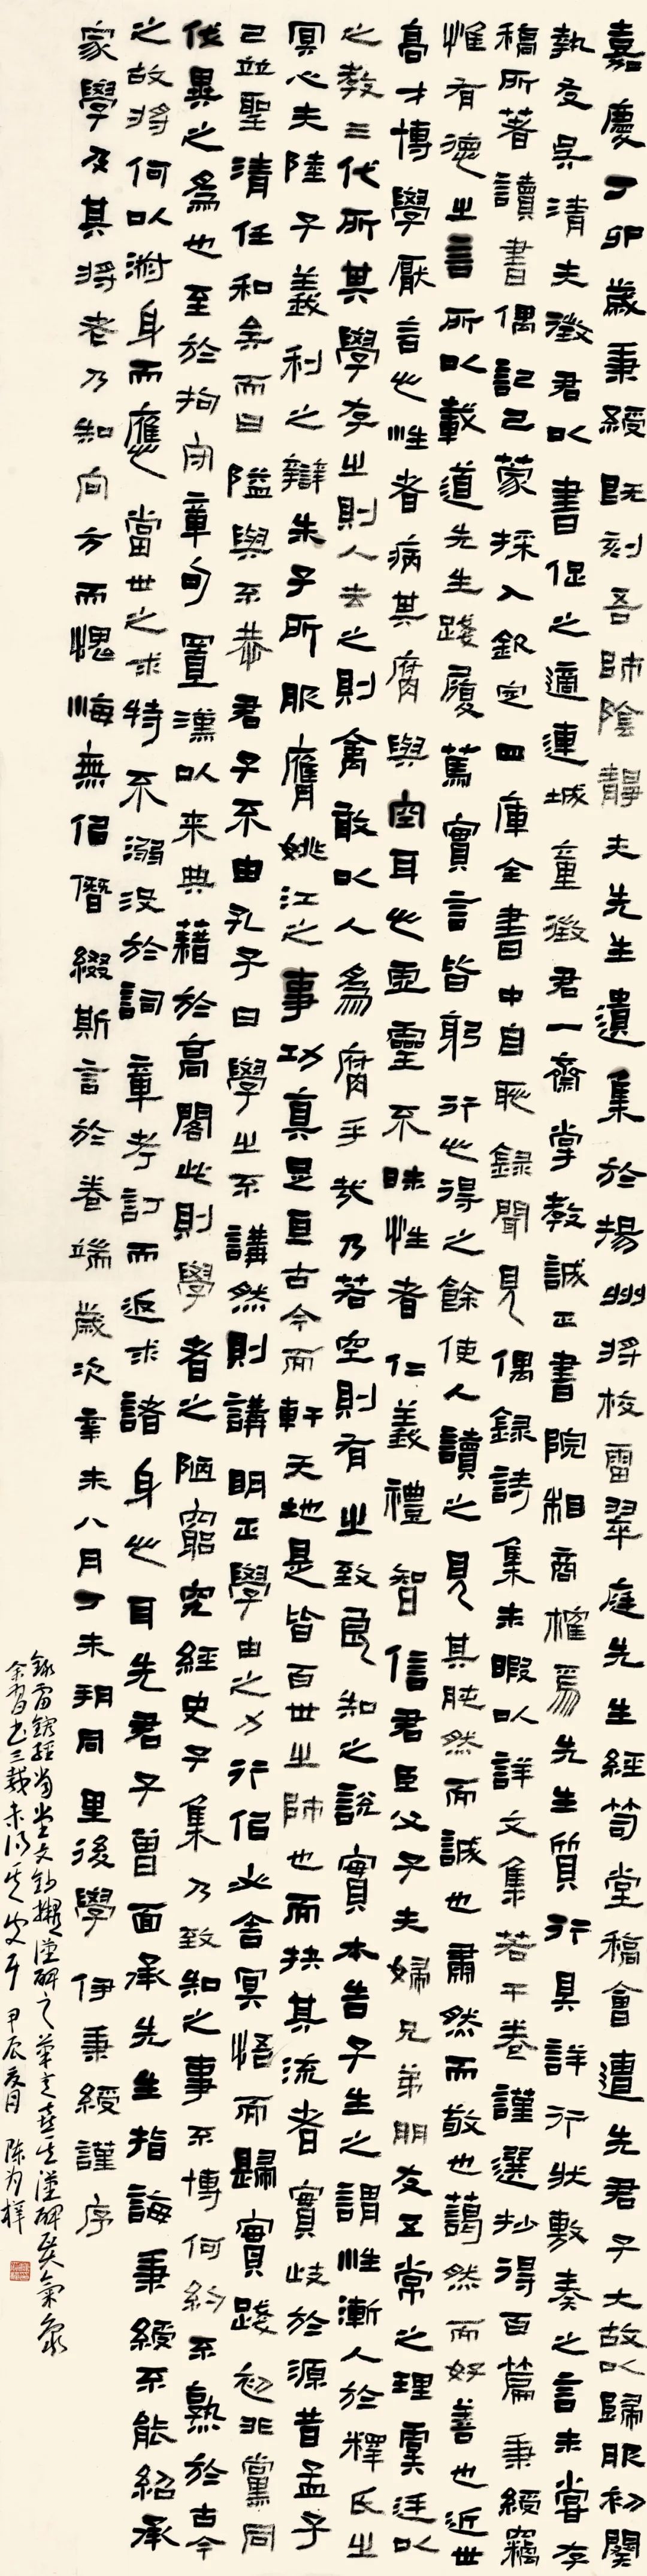 嘉慶丁卯歲秉綬既刻吾師陰靜夫先生遺集於揚州將校雷翠庭先生經笥堂稿會遭先君子大故以歸服初闋
執友吳清夫徵君以書促之適連城童徵君一齋掌教誠正書院相商榷焉先生質行具詳行狀敷奏之言未嘗存
稿所著讀書偶記已蒙採入欽定四庫全書中自恥錄聞見偶錄詩集未暇以詳文集若干卷謹選抄得百篇秉綬竊
惟有德之言所以載道先生踐履篤實言皆躬行心得之餘使人讀之見其肫然而誠也肅然而敬也藹然而好善也近世
高才博學厭言心性者病其腐與空耳心虛靈不昧性者仁義禮智信君臣父子夫婦兄弟朋友五常之理虞廷以
之教三代所其學存之則人去之則禽敢以人為腐乎哉乃若空則有之致良知之說實本告子生之謂性漸人於釋氏之
冥心夫陸子義利之辯朱子所服膺姚江之事功真是亘古今而軒天地是皆百世之師也而抉其流者實歧於源昔孟子
已並聖清任和矣而曰隘與不恭君子不由孔子曰學之不講然則講明正學由之力行侶必舍冥悟而歸實踐初非黨同
伐異之為也至於拘守章句置漢以来典藉於高閣此則學者之陋窮究經史子集乃致知之事不博何約不熟於古今
之故將何以淑身而應當世之求特不溺没於詞章考訂而返求諸身心耳先君子曾面承先生指誨秉綬不能紹承
家學及其將老乃知向方而愧悔無侶僭綴斯言於卷端歲次辛未八月丁未朔同里後學伊秉綬謹序
錄雷鋐經笥堂文鈔擬漢碑之筆意焉此漢碑异氣象
余習書三载未得其皮耳甲辰夏月陈为样